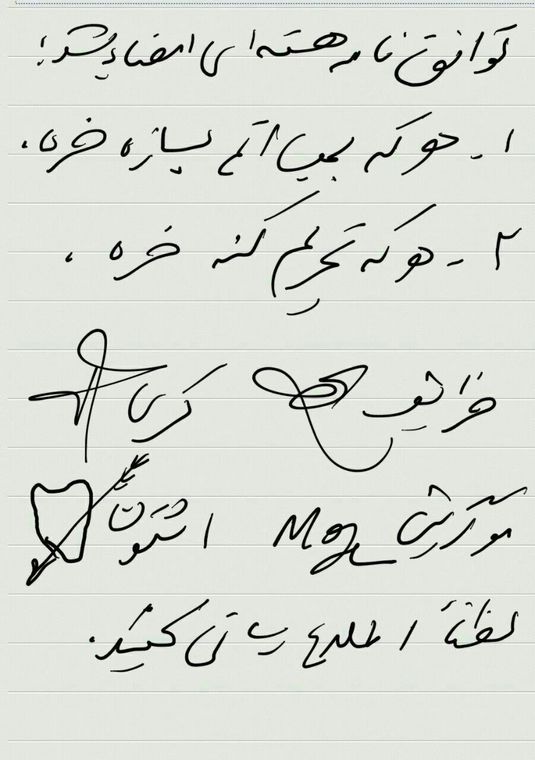 توافق نامه هسته ای امضاء شد!
۱ - هر که بمب اتم بسازه خره.
۲ - هر که تحریم کنه خره.
ظریف کری
موگرینی Mog اشتون
لطفاً اطلاع رسانی کنید.